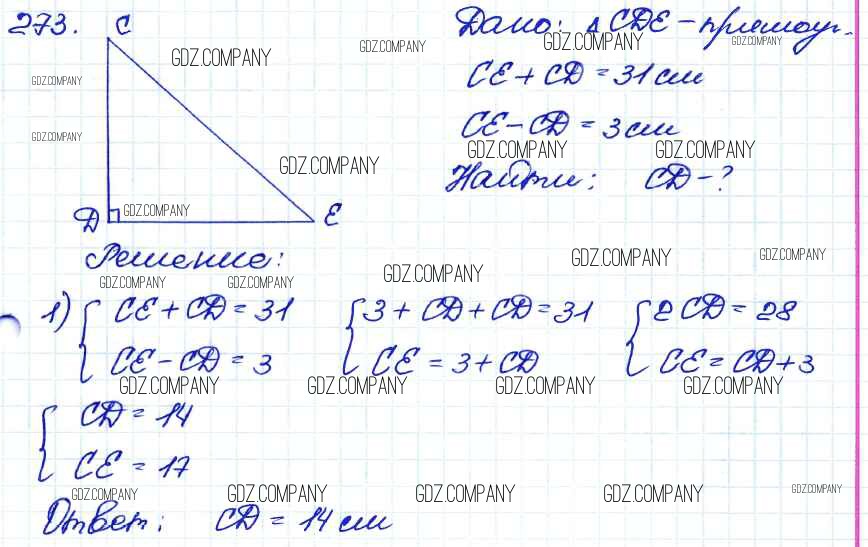 273.
C
Дано: Δ CDE - прямоуг.
GDZ.COMPANY GDZ.COMPANY GDZ.COMPANY GDZ.COMPANY
CE + CD = 31 см
GDZ.COMPANY
CE - CD = 3 см
GDZ.COMPANY
GDZ.COMPANY GDZ.COMPANY
GDZ.COMPANY
Найти: CD - ?
D GDZ.COMPANY E
Решение:
GDZ.COMPANY GDZ.COMPANY
GDZ.COMPANY
GDZ.COMPANY GDZ.COMPANY
1) { CE + CD = 31 { 3 + CD + CD = 31 { 2 CD = 28
CE - CD = 3 CE = 3 + CD CE = CD + 3
GDZ.COMPANY GDZ.COMPANY GDZ.COMPANY GDZ.COMPANY
{ CD = 14
CE = 17
GDZ.COMPANY GDZ.COMPANY GDZ.COMPANY GDZ.COMPANY GDZ.COMPANY
Ответ: CD = 14 см